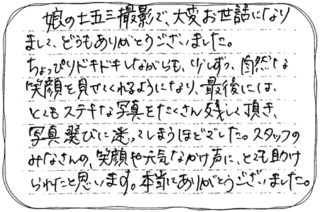 娘の七五三撮影で、大変お世話になり
まして、どうもありがとうございました。
ちょっぴりドキドキしながらも、少しずつ、自然な
笑顔を見せてくれるようになり、最後には、
とてもステキな写真をたくさん残して頂き、
写真選びに迷ってしまうほどでした。スタッフの
みなさんの、笑顔や元気なかけ声に、とても助け
られたと思います。本当にありがとうございました。